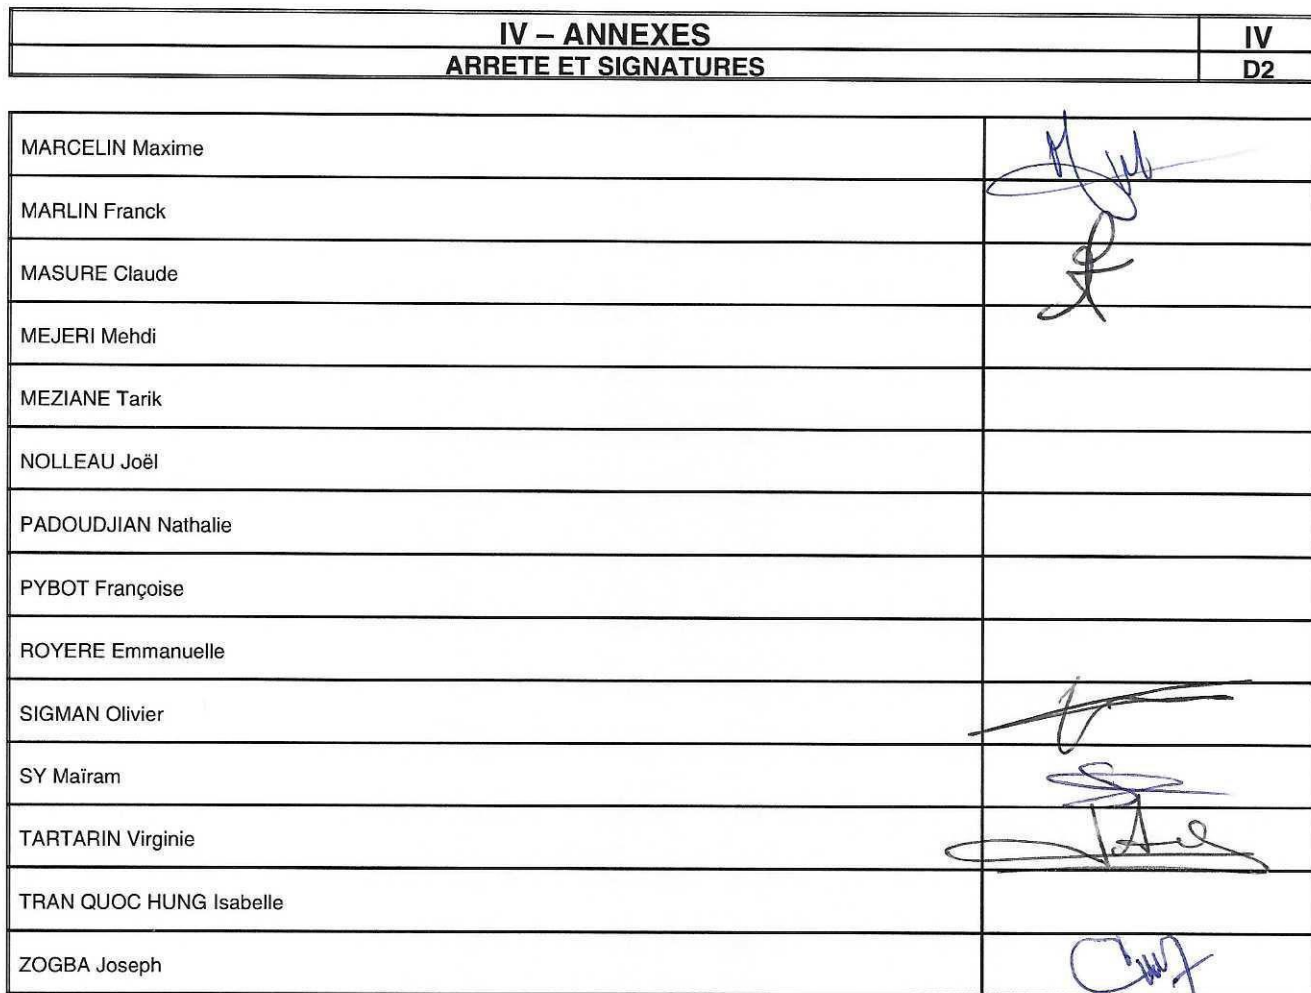 IV – ANNEXES
IV
ARRETE ET SIGNATURES
D2
MARCELIN Maxime
MARLIN Franck
MASURE Claude
MEJERI Mehdi
MEZIANE Tarik
NOLLEAU Joël
PADOUDJIAN Nathalie
PYBOT Françoise
ROYERE Emmanuelle
SIGMAN Olivier
SY Maïram
TARTARIN Virginie
TRAN QUOC HUNG Isabelle
ZOGBA Joseph